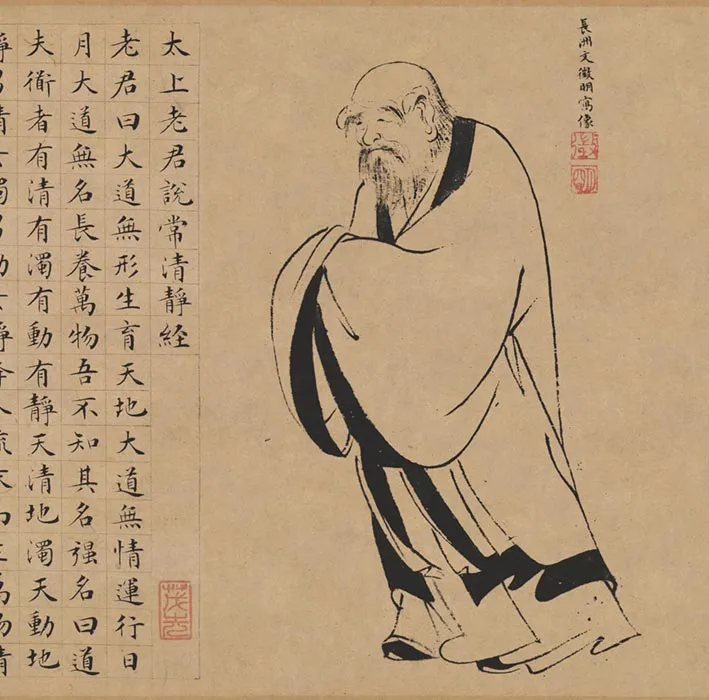 長洲文徵明寫像
徵
明
太上老君說常清靜経
老君曰大道無形生育天地大道無情運行日
月大道無名長養萬物吾不知其名强名曰道
夫衜者有清有濁有動有靜天清地濁天動地